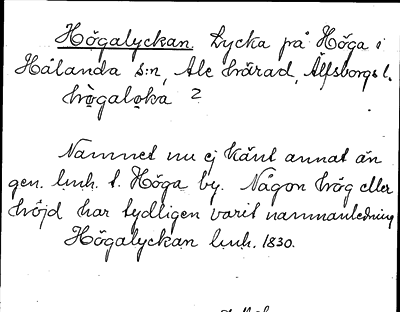 Högalyckan. Lycka på Höga i
Hålanda s:n, Ale härad, Älfsborgs l.
hògalo̧ka 2
Namnet nu ej känt annat än
gen. lmh. t. Höga by. Någon hög eller
höjd har tydligen varit namnanledning
Högalyckan lmh. 1830.